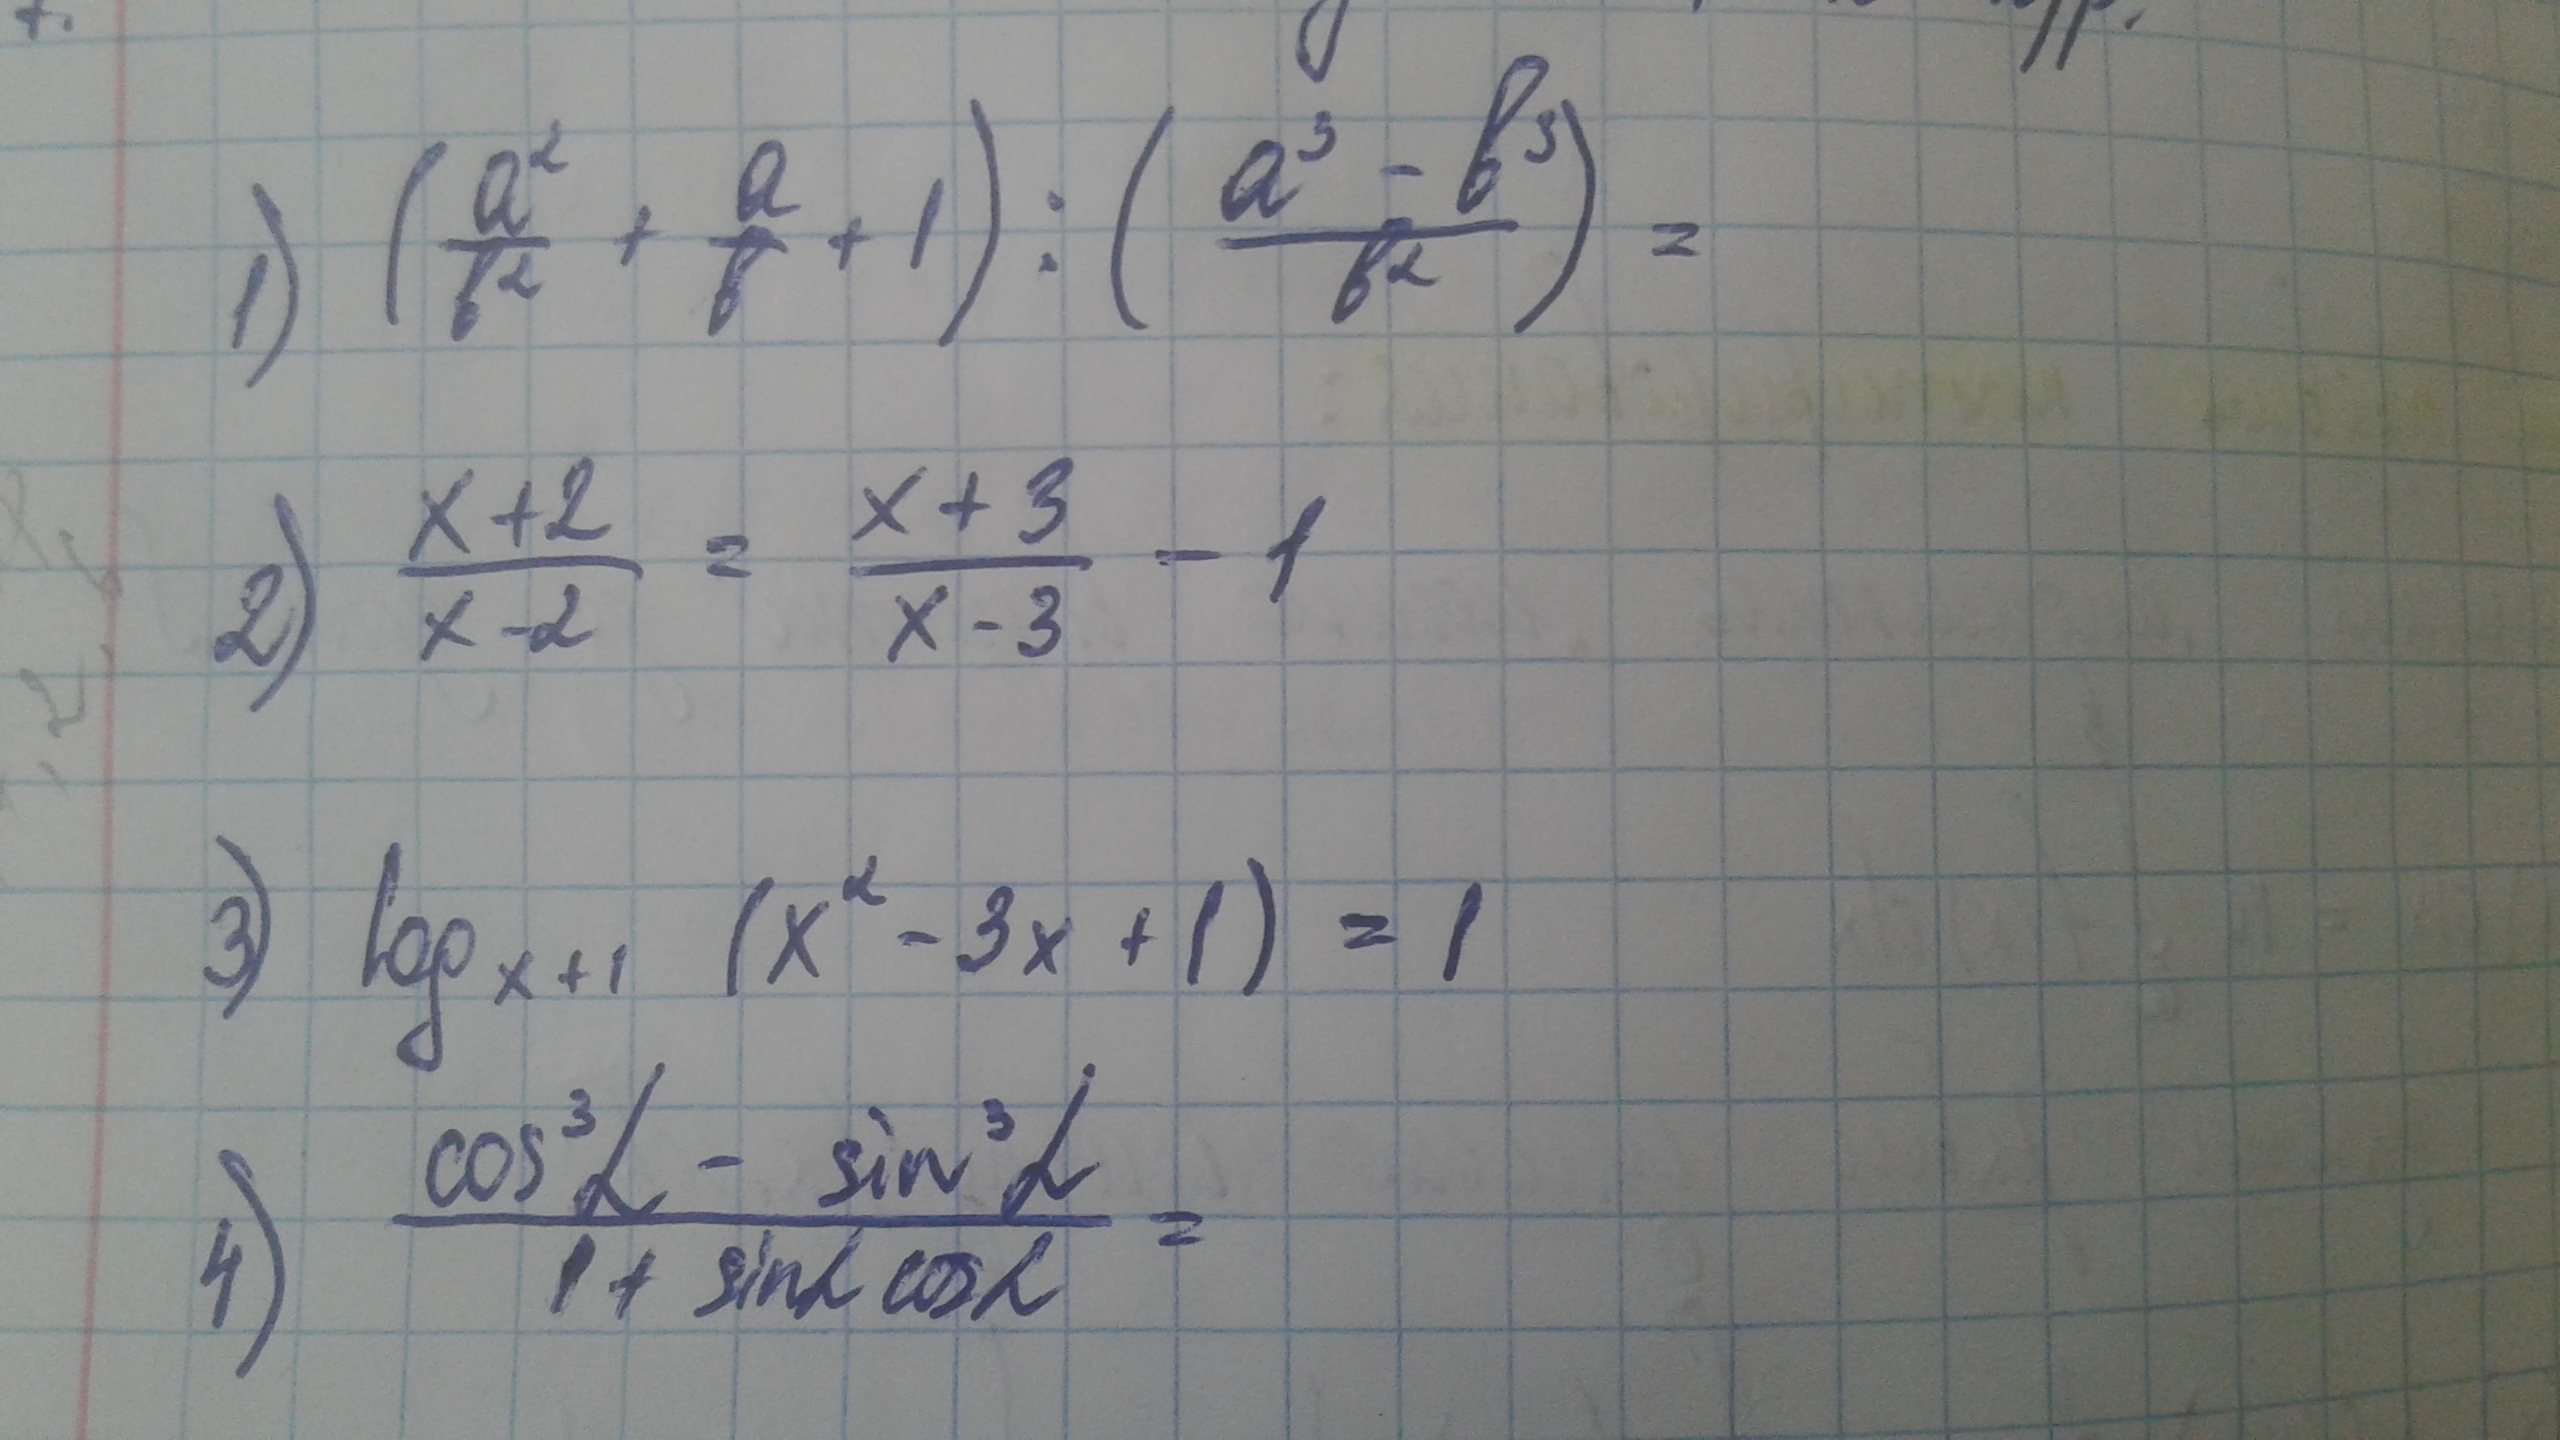 1) (a²/b² + a/b + 1) : (a³ - b³/b²) =
2) x+2/x-2 = x+3/x-3 - 1
3) log x+1 (x² - 3x + 1) = 1
4) cos³α - sin³α/1 + sinα cosα =